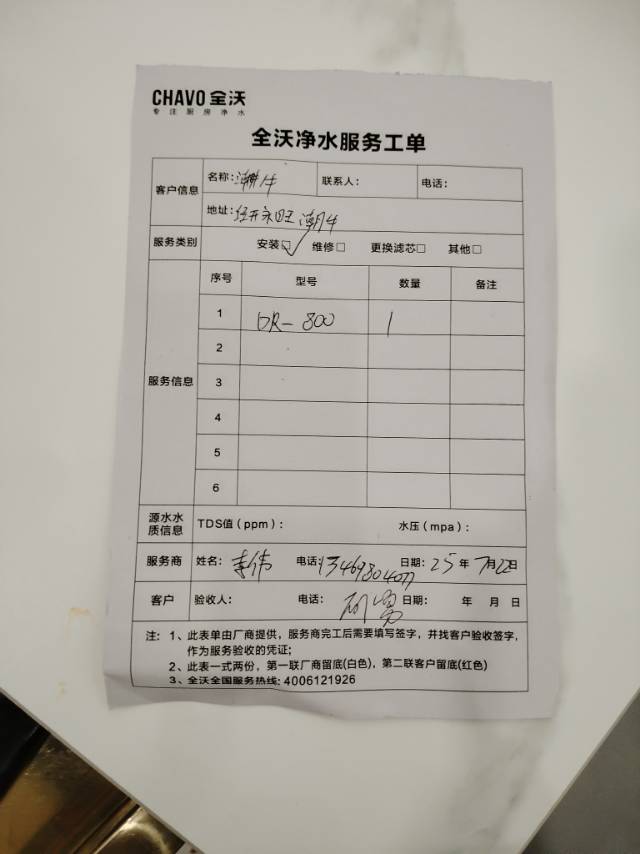 CHAVO 全沃
专注厨房净水
全沃净水服务工单
客户信息 名称: 潮牛 联系人: 电话:
地址: 经开永旺 潮牛
服务类别 安装☑ 维修□ 更换滤芯□ 其他□
服务信息 序号 型号 数量 备注
1 DR-800 1
2
3
4
5
6
源水水质信息 TDS值(ppm): 水压(mpa):
服务商 姓名: 李伟 电话: 13469804077 日期: 25年7月22日
客户 验收人: 电话: 日期: 年 月 日
注: 1、此表单由厂商提供，服务商完工后需要填写签字，并找客户验收签字，
作为服务验收的凭证;
2、此表一式两份，第一联厂商留底(白色)，第二联客户留底(红色)
3、全沃全国服务热线: 4006121926